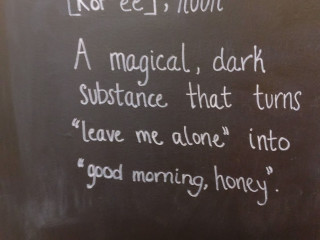 [Kof ee], noun
A magical, dark
substance that turns
"leave me alone" into
"good morning, honey".